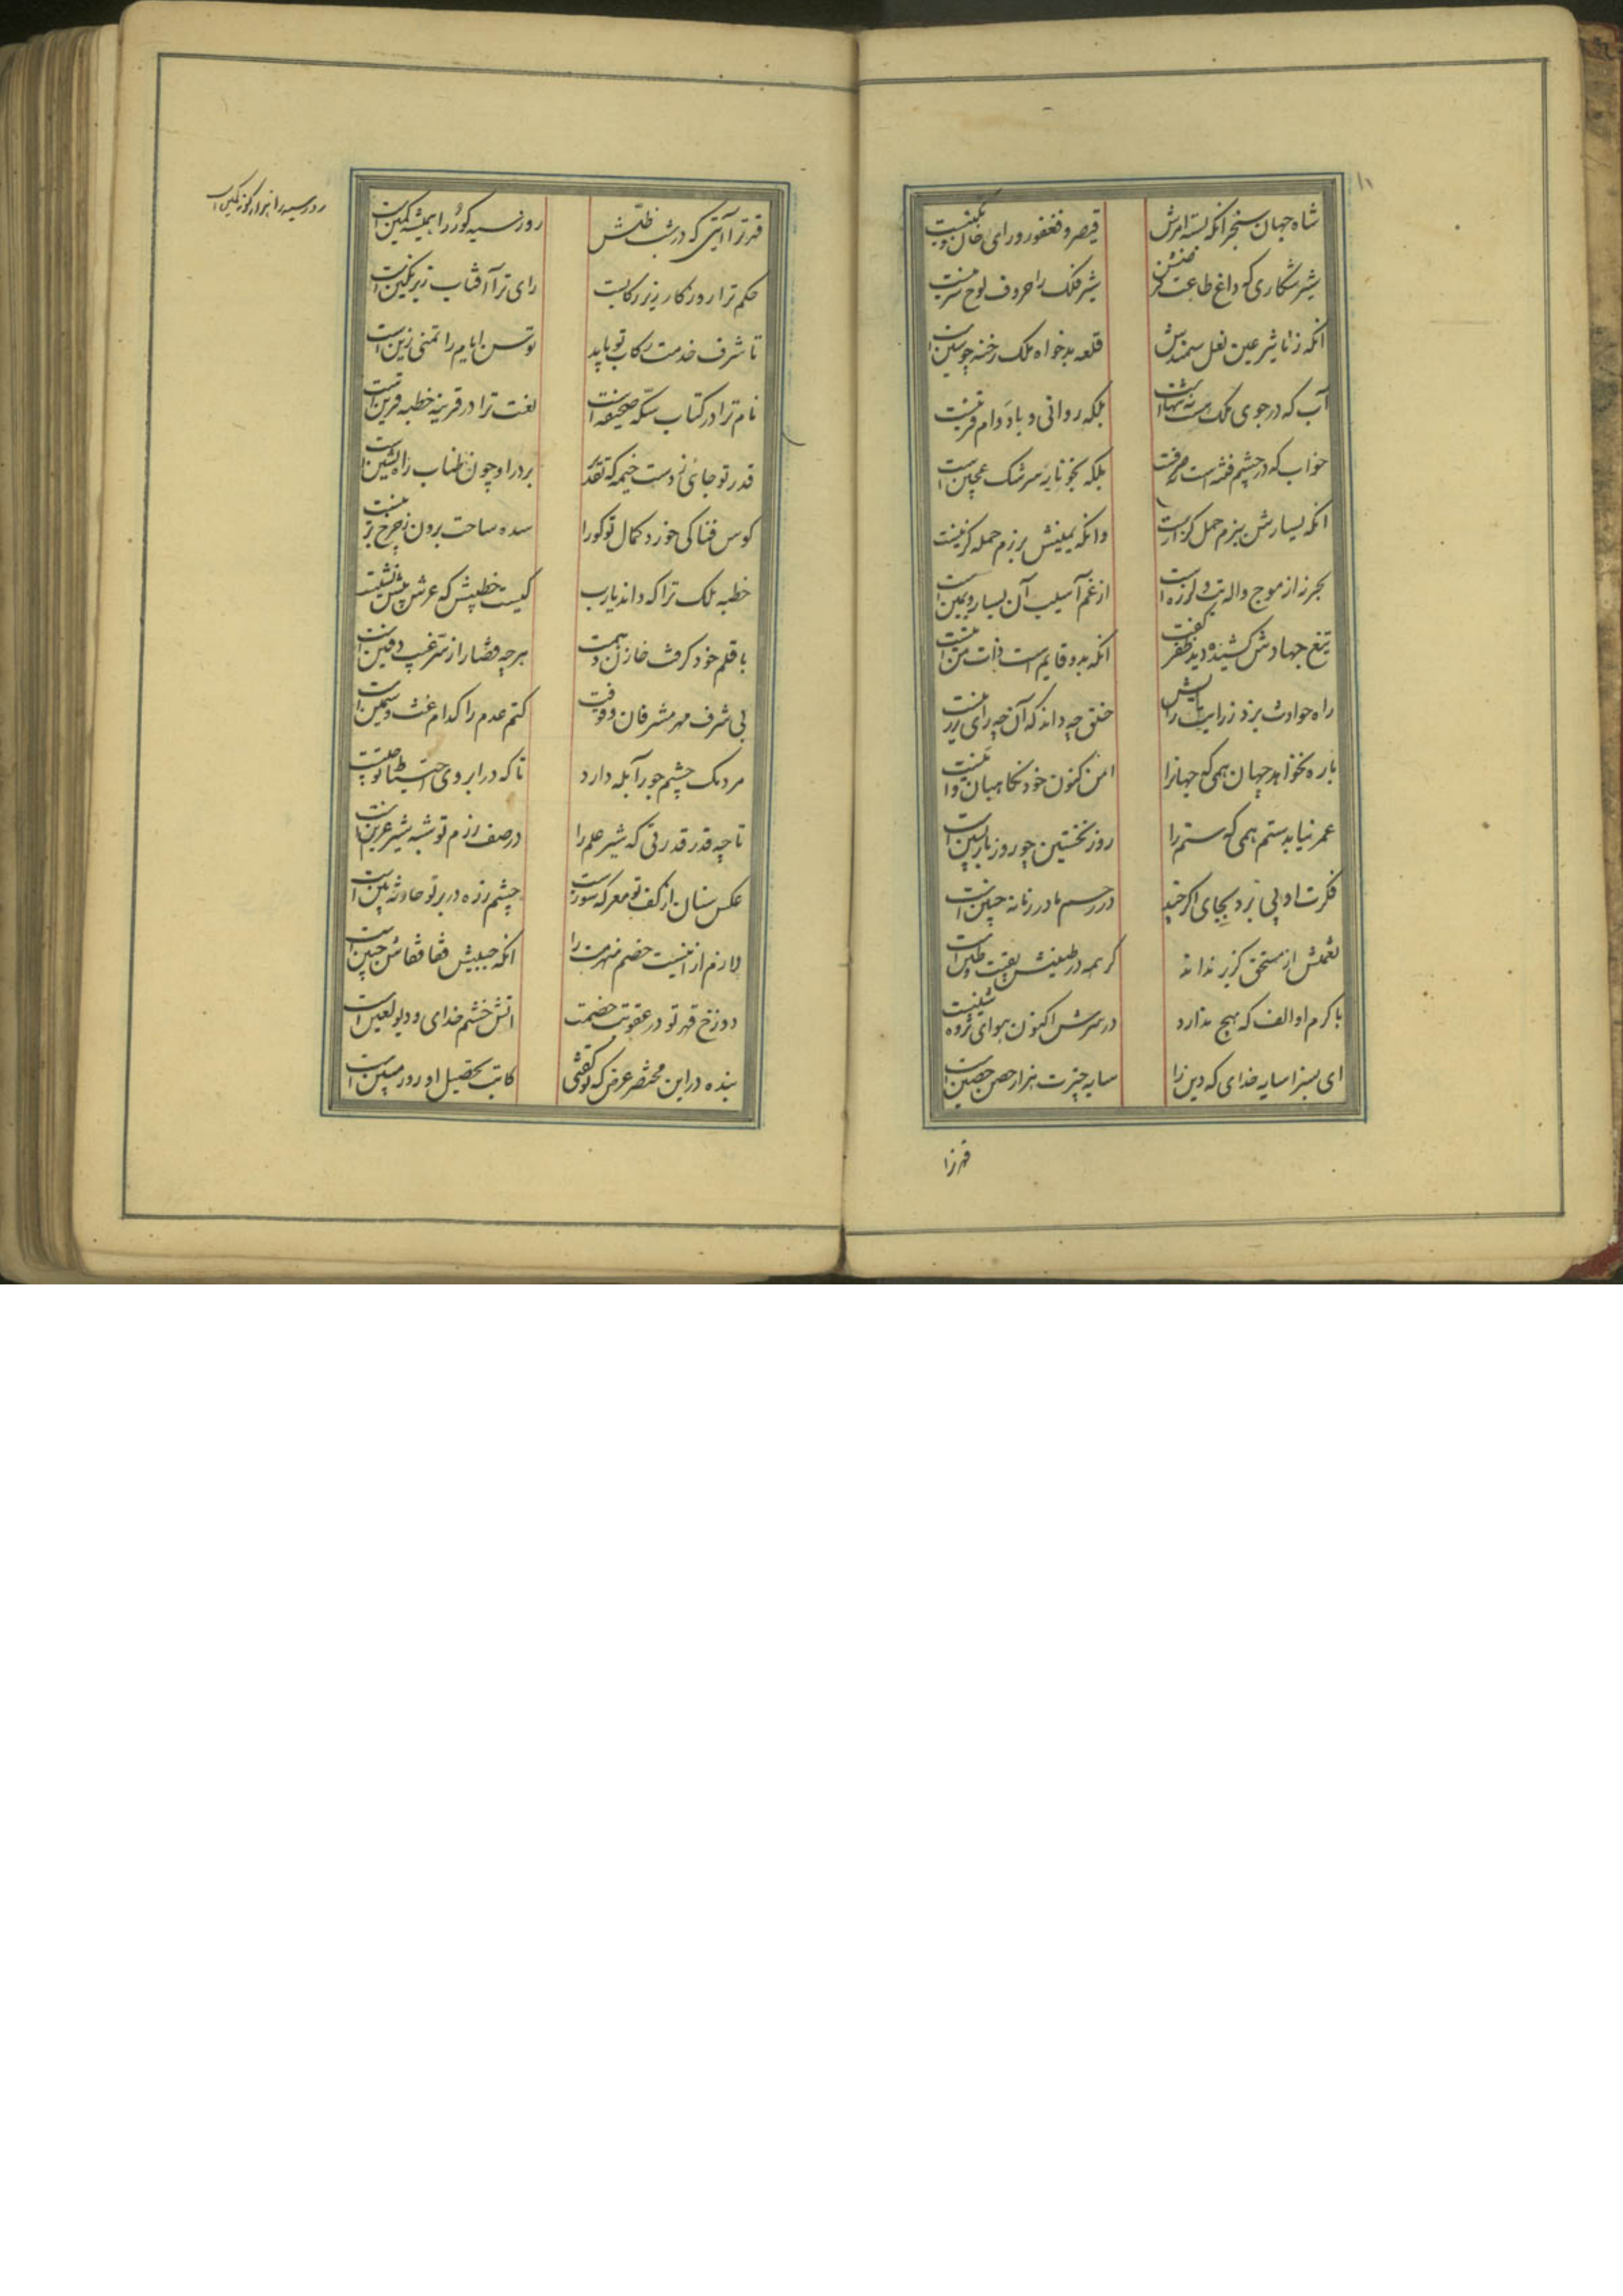 شاه جهان سنجر انکه بسته امرش
قیصر و فغفور و رای و خان و تکینست
شیر شکاری که داغ طاعت
شیر فلک را حروف لوح سرینست
انکه ز تاثیر عین نعل سمندش
قلعه بدخواه ملک رخنه چو سین است
آب که در جوی ملک اوست نه تنهاست
بلکه روانی و باد وام قرینست
خواب که در چشم فتنه است نه صرفست
بلکه بخونابه سرشک عجین است
انکه یسارش ببزم حمل کرانست
وانکه یمینش برزم حمله کزینست
بحر نه از موج واله تب و لرزه است
از غم آسیب آن یسار و یمین است
تیغ جهادش کشیده دید ظفر گفت
انکه بدو قایم است ذات من اینست
راه حوادث بزد رزانت رایش
خلق چه داند که آن چه رای رزینست
باره نخواهد جهان همی که جهانرا
امن کنون خود نکاهبان امینست
عمر نیابد ستم همی که ستم را
روز نخستین چو روز بازپسین است
فکرت او پی نبرد بجای اکر چند
در رحم مادر زمانه جنین است
نعمتش از مستحق کزیر نداند
کر همه در طینتش بقیت طین است
با کرم او الف که هیچ ندارد
در سرش اکنون هوای ثروت شینست
ای بسزا سایه خدای که دین را
سایه چترت هزار حصن حصین است
قهر ترا
قهر ترا آیتی که در شب ظلمش
روز سیه کور را همیشه کمین است
روز سیه را هزار کونه کمین است
حکم ترا روزکار زیر رکابست
رای ترا آفتاب زیر نکین است
تا شرف خدمت رکاب تو یابد
توسن ایام را تمنی زین است
نام ترا در کتاب سکه صحیفه است
نعت ترا در قرینه خطبه قرین است
قدر تو جائی زدست خیمه که تقدیر
بر در او چون طناب راه نشین است
کوس فنا کی خورد کمال تو کورا
سده ساحت برون ز چرخ برینست
خطبه ملک ترا که داند یارب
کیست خطیبش که عرش پیش نشینست
با قلم خود کرفت خازن و همت
هرچه قضا را ز سر غیب دفین است
بی شرف مهر مشرفان وقوفت
کتم عدم را کدام غث و سمین است
مردمک چشم جور آبله دارد
تا که در ابروی احتیاط تو چینست
تا چه قدر قدرتی که شیر علم را
در صف رزم تو شبه شیر عرین است
عکس سنان در کف تو معرکه سوزست
چشم زره در بر تو حادثه بین است
لازم از اینست خصم منهزمت را
انکه جبینش قفا قفاش جبین است
دوزخ قهر تو در عقوبت خصمت
اتش خشم خدای و دیو لعین است
بنده در این مختصر عرض که تو کفتی
کاتب تحصیل او روز مبین است